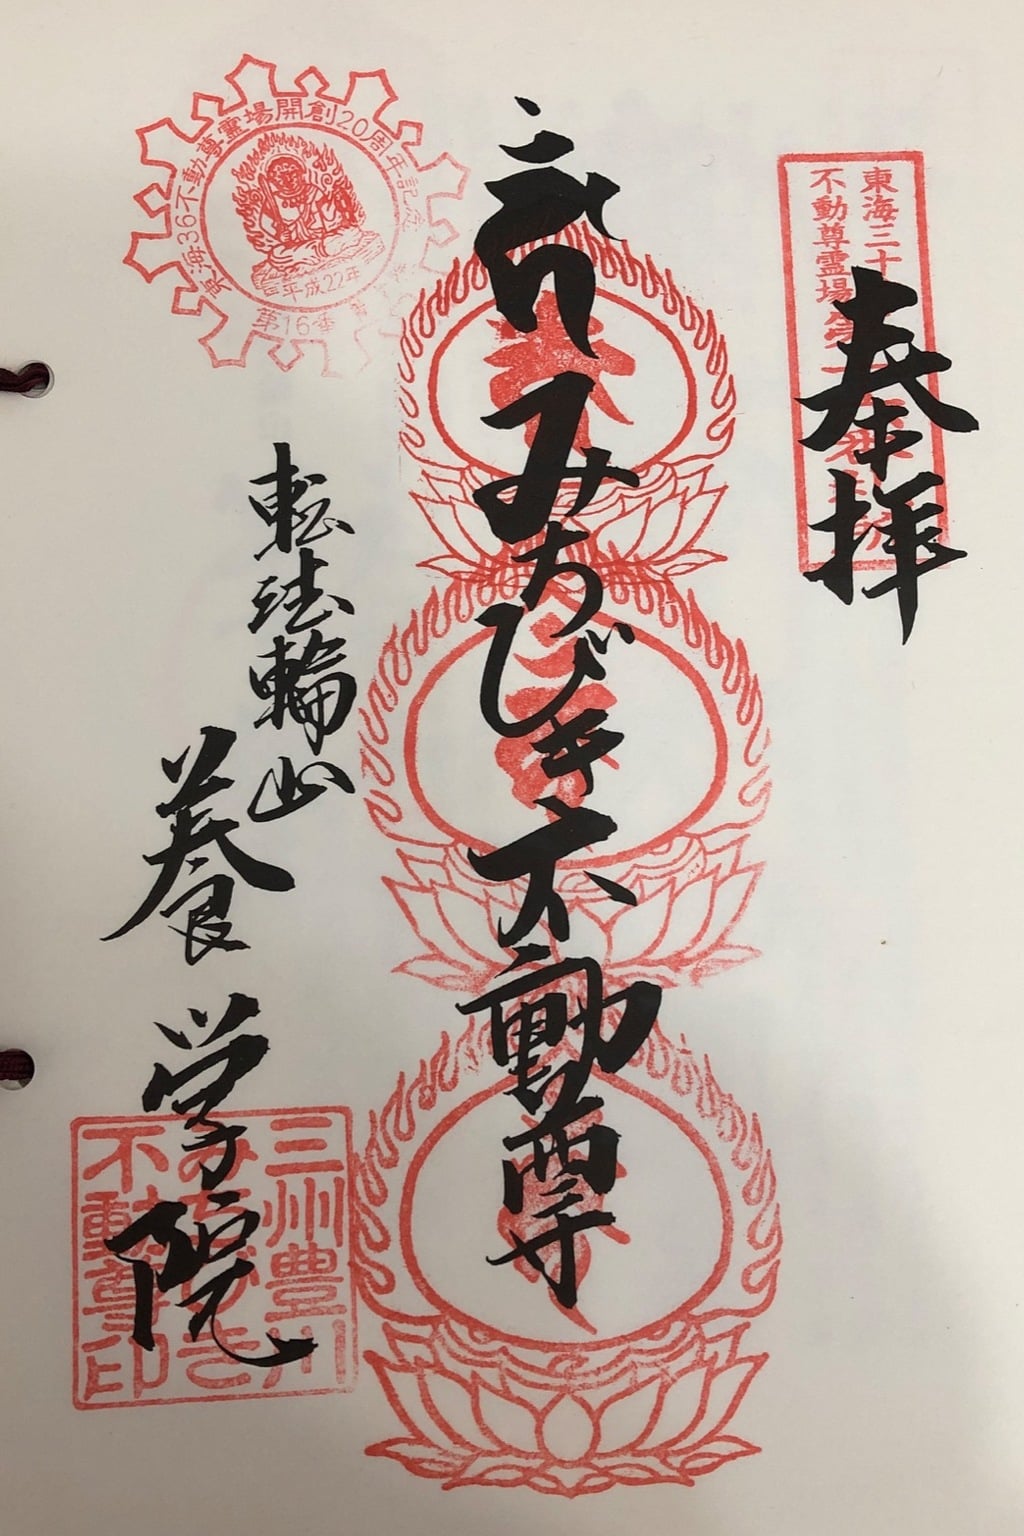 奉拝
東海三十
不動尊霊場第十
みちびき不動尊
転法輪山
養学院
東海36不動尊霊場開創20周年記念
平成22年
第16番
三州豊川
みちびき
不動尊印